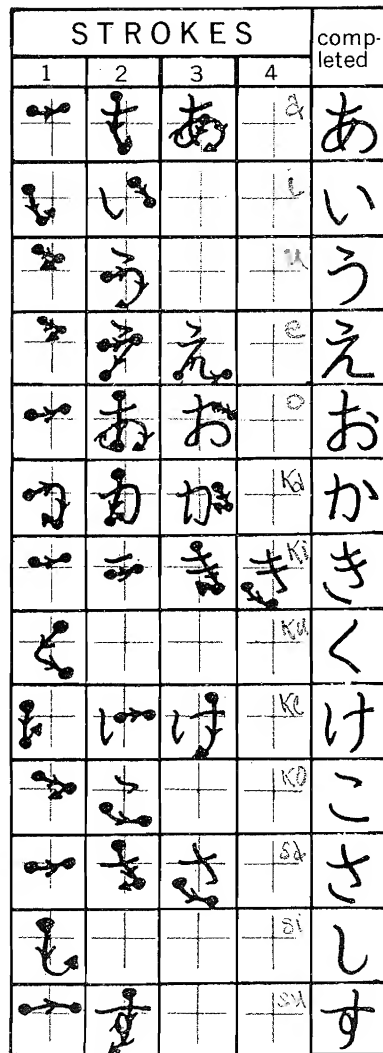 STROKES
completed
1 2 3 4
a あ
i い
u う
e え
o お
Ka か
Ki き
Ku く
Ke け
Ko こ
sa さ
si し
su す